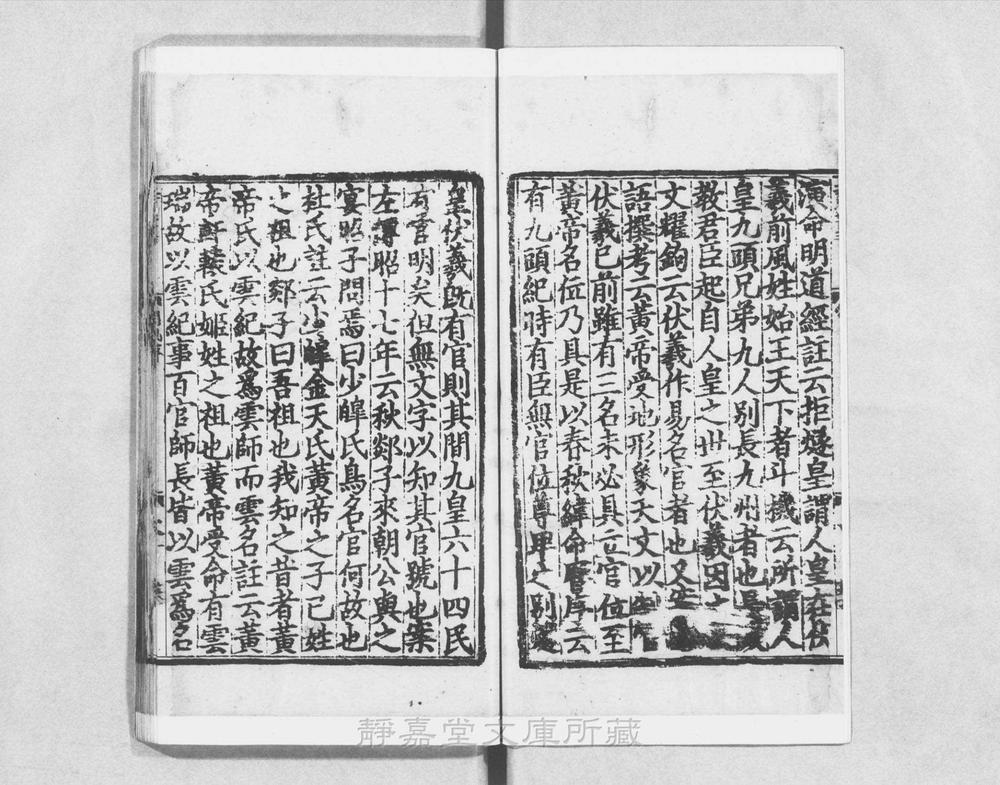 演命明道經註云拒燧皇謂人皇在伏
羲前風姓始王天下者斗機云所謂人
皇九頭兄弟九人別長九州者也是
教君臣起自人皇之世至伏羲因之
文耀鉤云伏羲作易名官者也又
語撰考云黃帝受地形象天文以
伏羲已前雖有三名未必具立官位至
黃帝名位乃具是以春秋緯命曆序云
有九頭紀時有臣無官位尊卑之別
皇伏羲旣有官則其間九皇六十四民
有官明矣但無文字以知其官號也案
左傳昭十七年云秋郯子來朝公與之
宴昭子問焉曰少皞氏鳥名官何故也
杜氏註云少皞金天氏黃帝之子已姓
之祖也郯子曰吾祖也我知之昔者黃
帝氏以雲紀故爲雲師而雲名註云黃
帝軒轅氏姬姓之祖也黃帝受命有雲
瑞故以雲紀事百官師長皆以雲爲名
靜嘉堂文庫所藏